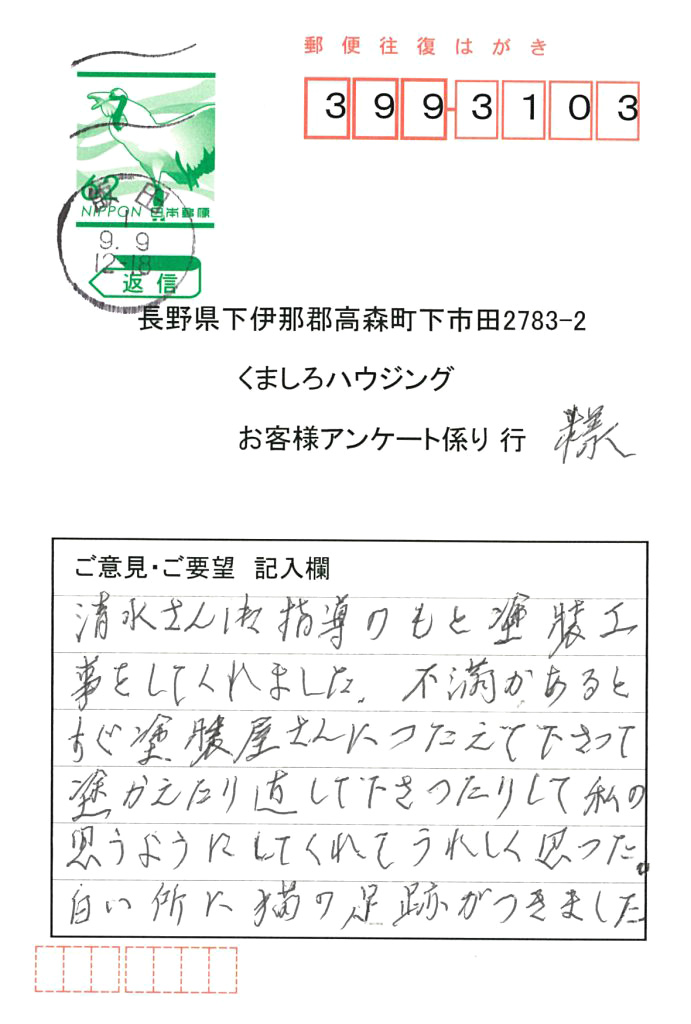 郵便往復はがき
399-3103
62
NIPPON 日本郵便
飯田
9.9
12-18
返信
長野県下伊那郡高森町下市田2783-2
くましろハウジング
お客様アンケート係り 行 様
ご意見・ご要望 記入欄
清水さん御指導のもと塗装工
事をしてくれました。不満があると
すぐ塗装屋さんにつたえて下さって
塗かえたり直して下さったりして私の
思うようにしてくれてうれしく思った。
白い所に猫の足跡がつきました